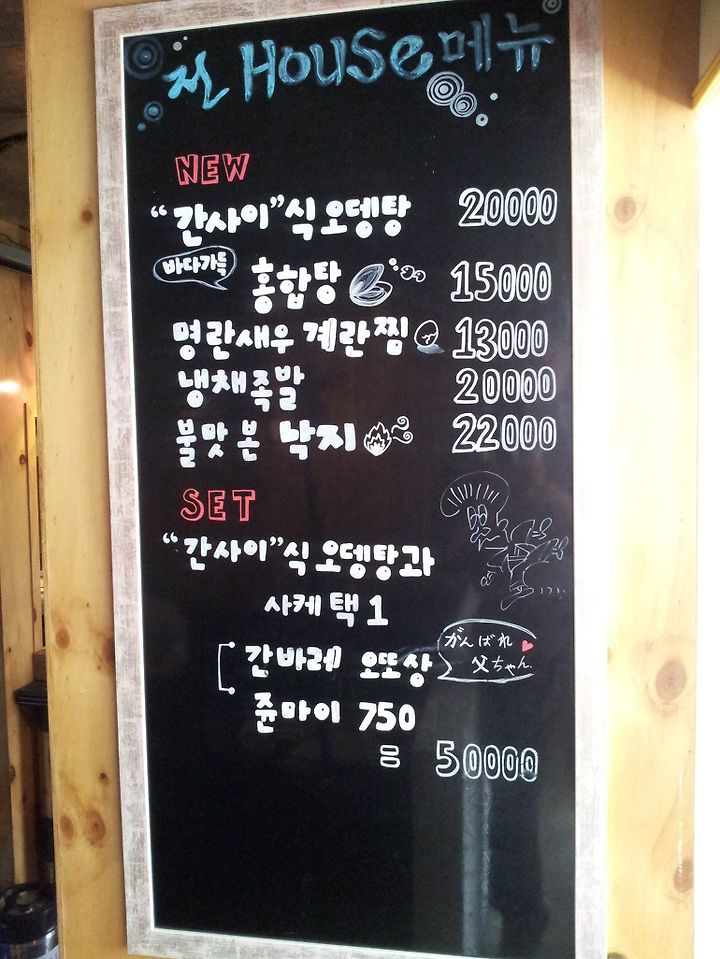 전 House 메뉴
NEW
"간사이"식 오뎅탕 20000
바다가득
홍합탕 15000
명란새우 계란찜 13000
냉채족발 20000
불맛 본 낙지 22000
SET
"간사이"식 오뎅탕과
사케 택 1
간바레 오또상
がんばれ
父ちゃん
쥰마이 750
= 50000